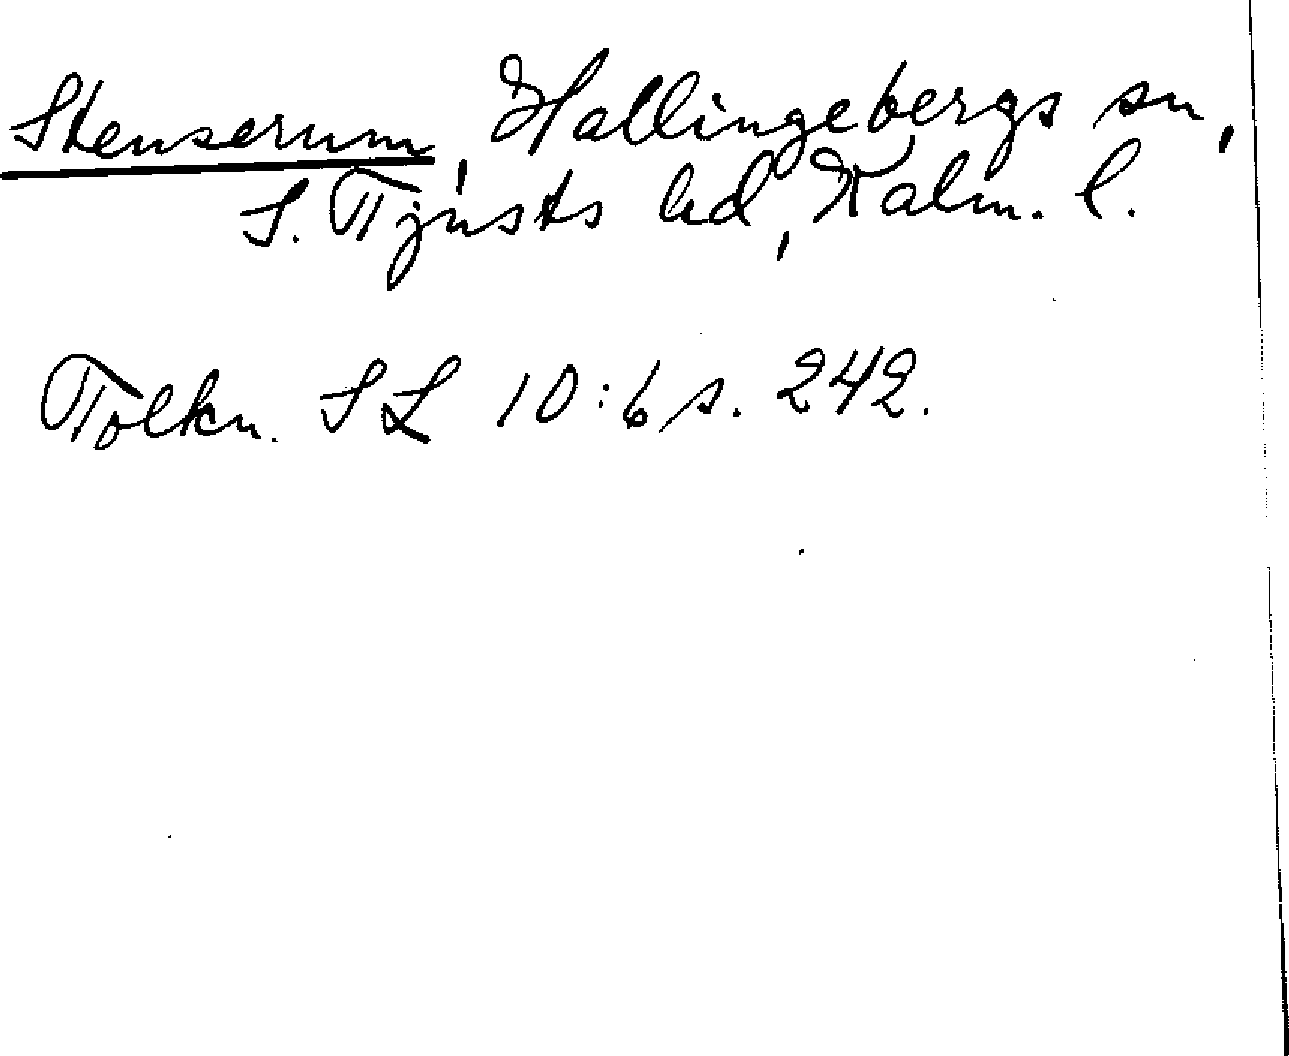 Stenserum, Hallingebergs sn,
S. Tjusts hd, Kalm. l.
Tolkn. SL 10:6 s. 242.